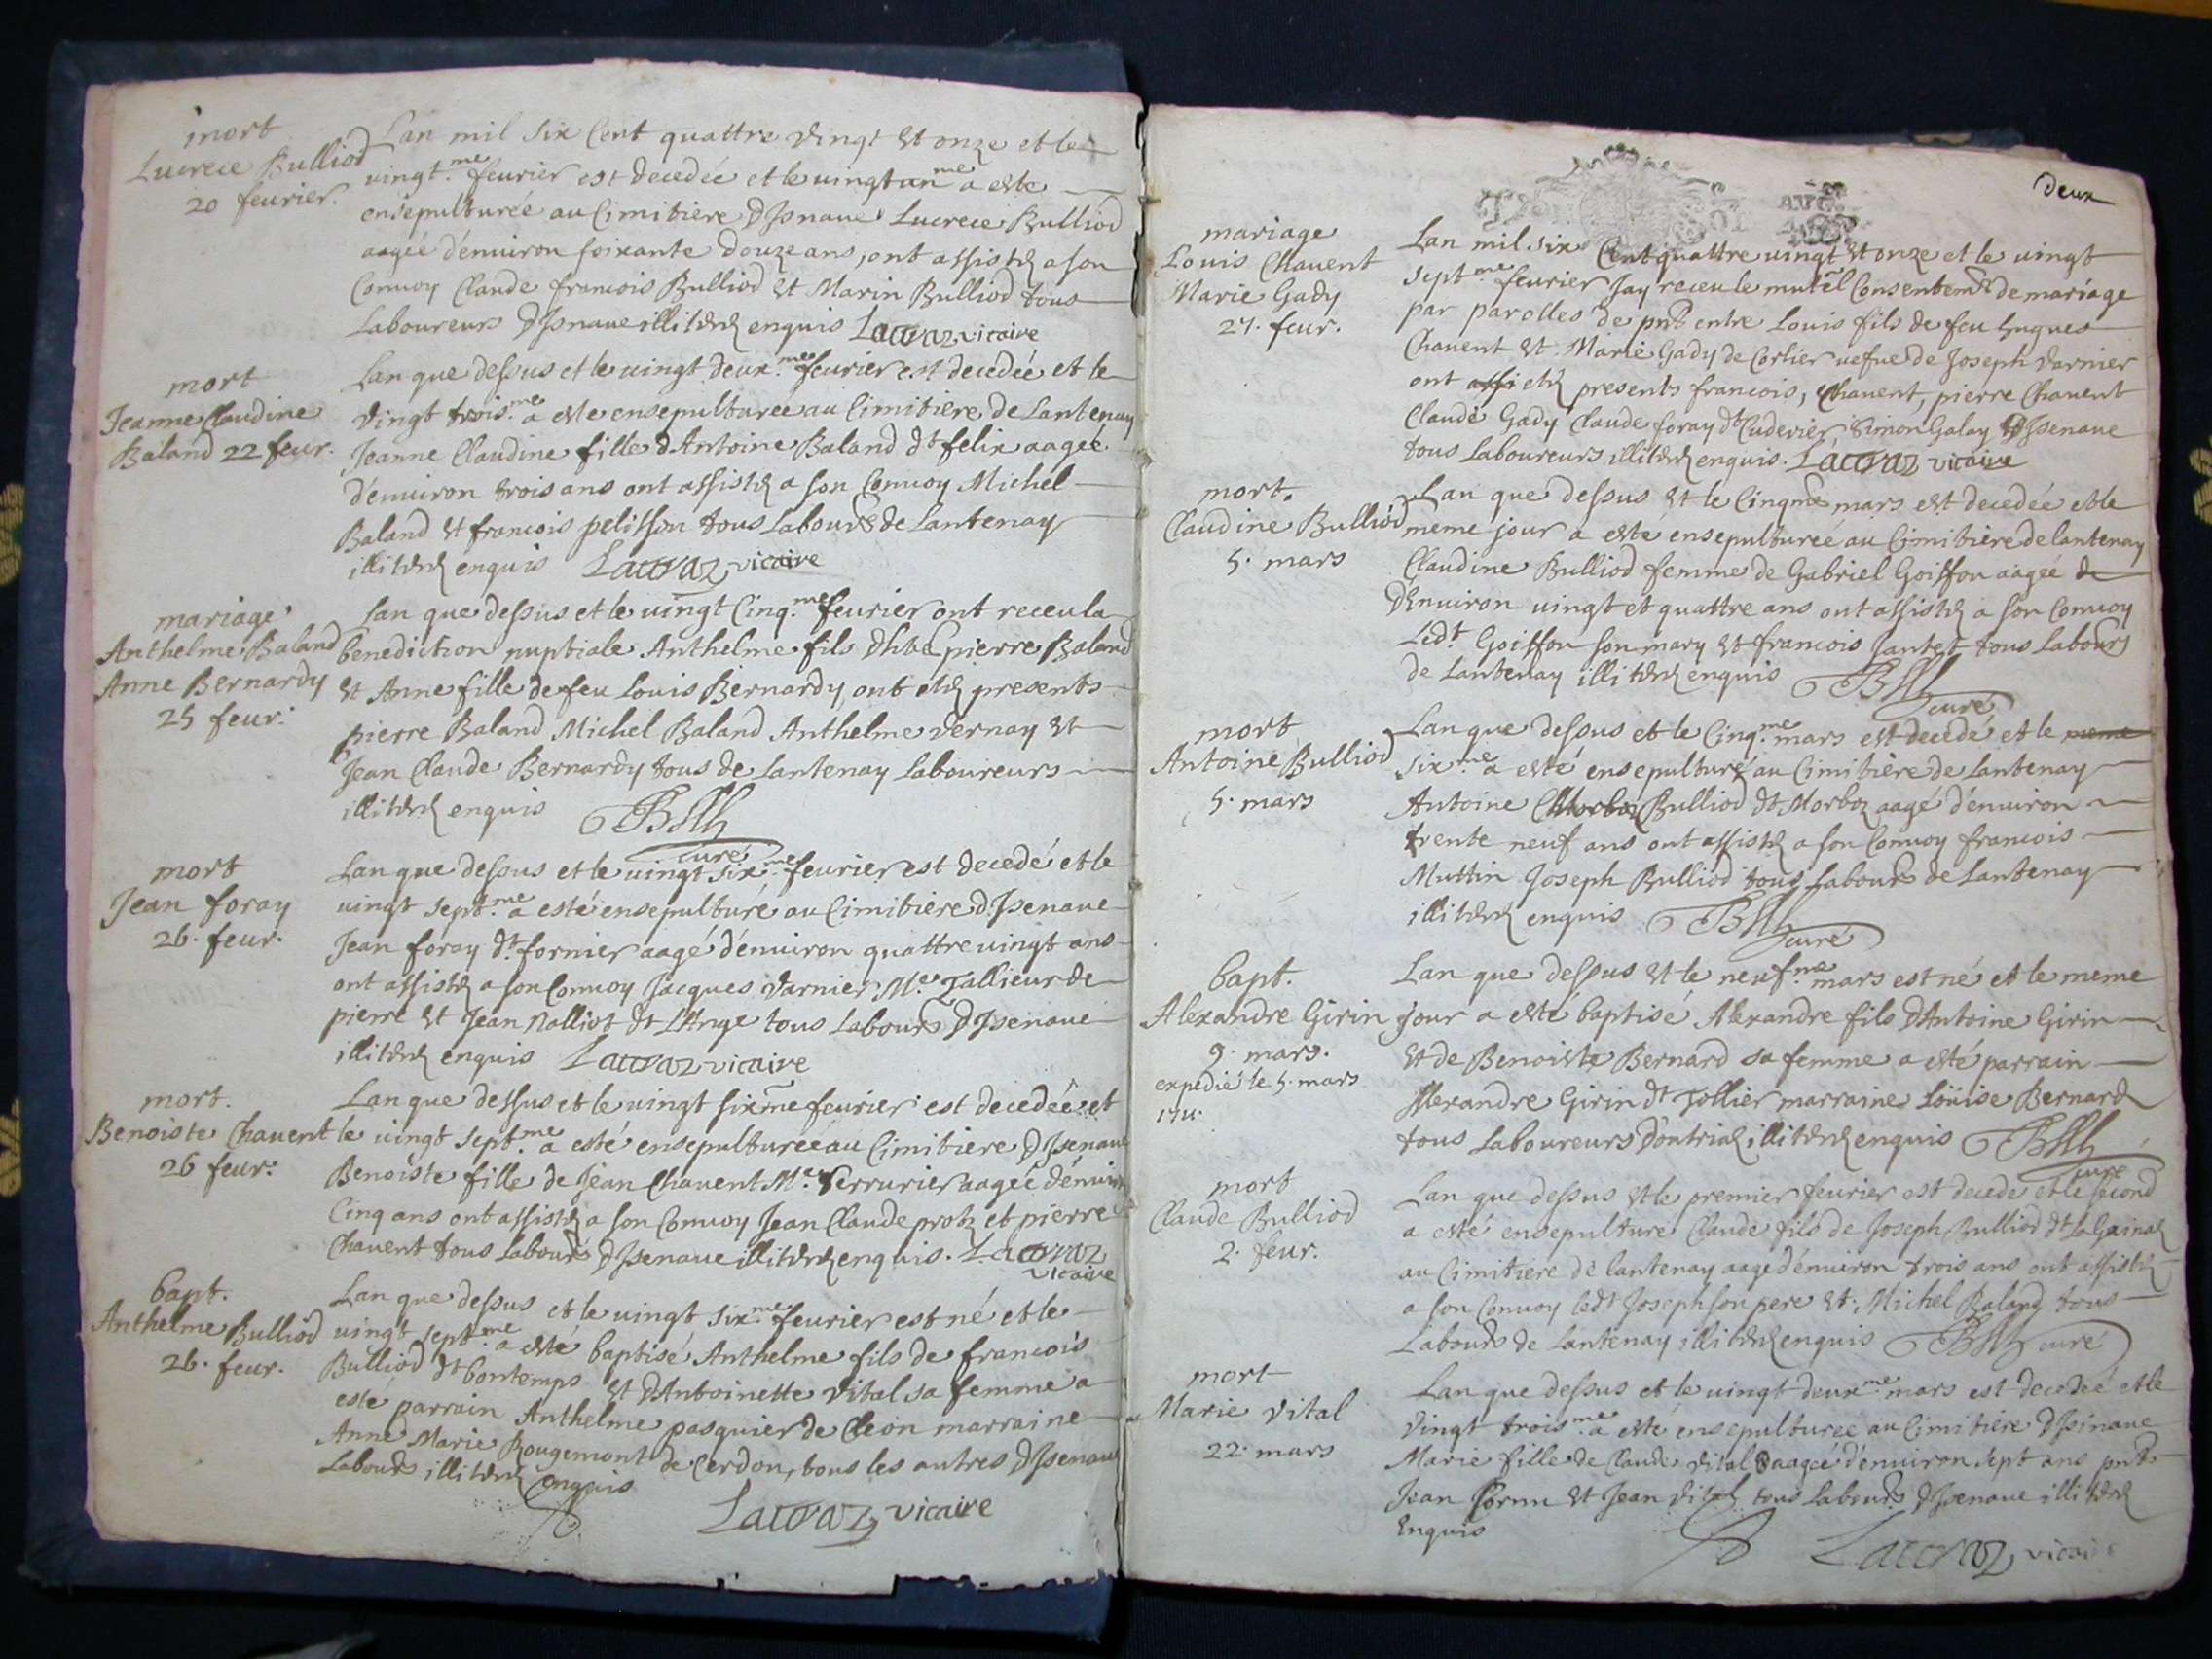 mort
Lucrece Bulliod
20 feurier.
Lan mil six Cent quattre vingt et onze et le
uingt.me feurier est decedée et le uingt un me a este
ensepulturée au Cimitière d'Isnaue Lucrece Bulliod
aagée d'enuiron soixante douze ans, ont assistéz a son
Conuoy Claude francois Bulliod et Marin Bulliod tous
Laboureurs d'Isnaue illiteréz enquis Lacraz vicaire
mort
Jeanne Claudine
Baland 22 feur.
Lan que dessus et le uingt deux.me feurier est decedée et le
vingt trois.me a este ensepulturée au Cimitière de Lantenay
Jeanne Claudine fille d'Antoine Baland dt felix aagée
d'enuiron trois ans ont assistéz a son Conuoy Michel
Baland et francois pelisson tous Labours de Lantenay
illiteréz enquis Lacraz vicaire
mariage
Anthelme Baland
Anne Bernardy
25 feur.
Lan que dessus et le uingt Cinq.me feurier ont receu la
benediction nuptiale Anthelme fils d'hble pierre Baland
et Anne fille de feu Louis Bernardy, ont etéz presents
pierre Baland Michel Baland Anthelme vernay et
Jean Claude Bernardy tous de Lantenay Laboureurs
illiteréz enquis
curé
mort
Jean foray
26. feur.
Lan que dessus et le uingt six.me feurier est decedé et le
uingt sept.me a esté ensepulturé au Cimitière d'Isenaue
Jean foray dt. fornier aagé d'enuiron quattre uingt ans
ont assistéz a son Conuoy Jacques varnier Me. Tallieur de
pierre et Jean Nalliot dt L'Ange tous Labours d'Isenaue
illiteréz enquis Lacraz vicaire
mort.
Benoiste Chauent
26 feur.
Lan que dessus et le uingt sixme feurier est decedée et
le uingt sept.me a esté ensepulturée au Cimitiere d'Isenaue
Benoiste fille de Jean Chauent Me. Serrurier aagée d'enuiron
Cinq ans ont assistéz a son Conuoy Jean Claude protz et pierre
Chauent tous Labours d'Isenaue illiteréz enquis. Lacraz
vicaire
bapt.
Anthelme Bulliod
26. feur.
Lan que dessus et le uingt six.me feurier est né et le
uingt sept.me a esté baptisé Anthelme fils de francois
Bulliod dt bontemps et d'Antoinette vital sa femme a
este parrain Anthelme pasquier de Cleon marraine
Anne Marie Rougemont de Cerdon, tous les autres d'Isenaue
Labours illiteréz enquis
Lacraz vicaire
deux
mariage
Louis Chauent
Marie Gady
27. feur.
Lan mil six Cent quattre uingt et onze et le uingt
sept.me feurier Jay receu le mutel Consentemt de mariage
par parolles de pnt entre Louis fils de feu hugues
Chauent et Marie Gady de Corlier uefue de Joseph varnier
ont assi etéz presents francois, Chauent, pierre Chauent
Claude Gady Claude foray dt Cudevier, Simon Galay d'Isenaue
tous Laboureurs illiteréz enquis. Lacraz vicaire
mort.
Claudine Bulliod
5. mars
Lan que dessus et le Cinqme mars est decedée et le
meme jour a esté ensepulturée au Cimitière de lantenay
Claudine Bulliod femme de Gabriel Goiffon aagée de
d'enuiron uingt et quattre ans ont assistéz a son Conuoy
Ledt. Goiffon son mary et francois Jantet tous Labours
de Lantenay illiteréz enquis
curé
mort
Antoine Bulliod
5. mars
Lan que dessus et le Cinq.me mars est decedé et le meme
six.me a esté ensepulturé au Cimitière de Lantenay
Antoine Bulliod dt Morboz aagé d'enuiron
trente neuf ans ont assistéz a son Conuoy francois
Muttin Joseph Bulliod tous Labours de Lantenay
illiteréz enquis
curé
bapt.
Alexandre Girin
9. mars.
expedié le 5. mars
Lan que dessus et le neuf.me mars est né et le meme
jour a esté baptisé Alexandre fils d'Antoine Girin
et de Benoiste Bernard sa femme a esté parrain
Alexandre Girin dt Tollier marraine Loüise Bernard
tous Laboureurs d'outriaz illiteréz enquis
curé
mort
Claude Bulliod
2. feur.
Lan que dessus et le premier feurier est decedé et le second
a esté ensepulturé Claude fils de Joseph Bulliod dt la Gainaz
au Cimitiere de lantenay aagé d'enuiron trois ans ont assistéz
a son Conuoy ledt Joseph son pere et Michel Baland tous
Labours de Lantenay illiteréz enquis
curé
mort
Marie vital
22. mars
Lan que dessus et le uingt deuxme mars est decedeé et le
vingt trois.me a esté ensepulturée au Cimitière d'Isinaue
Marie fille de Claude vital aagée d'enuiron sept ans pnts
Jean Cornu et Jean vital tous Labours d'Isenaue illiteréz
enquis
Lacraz vicaire